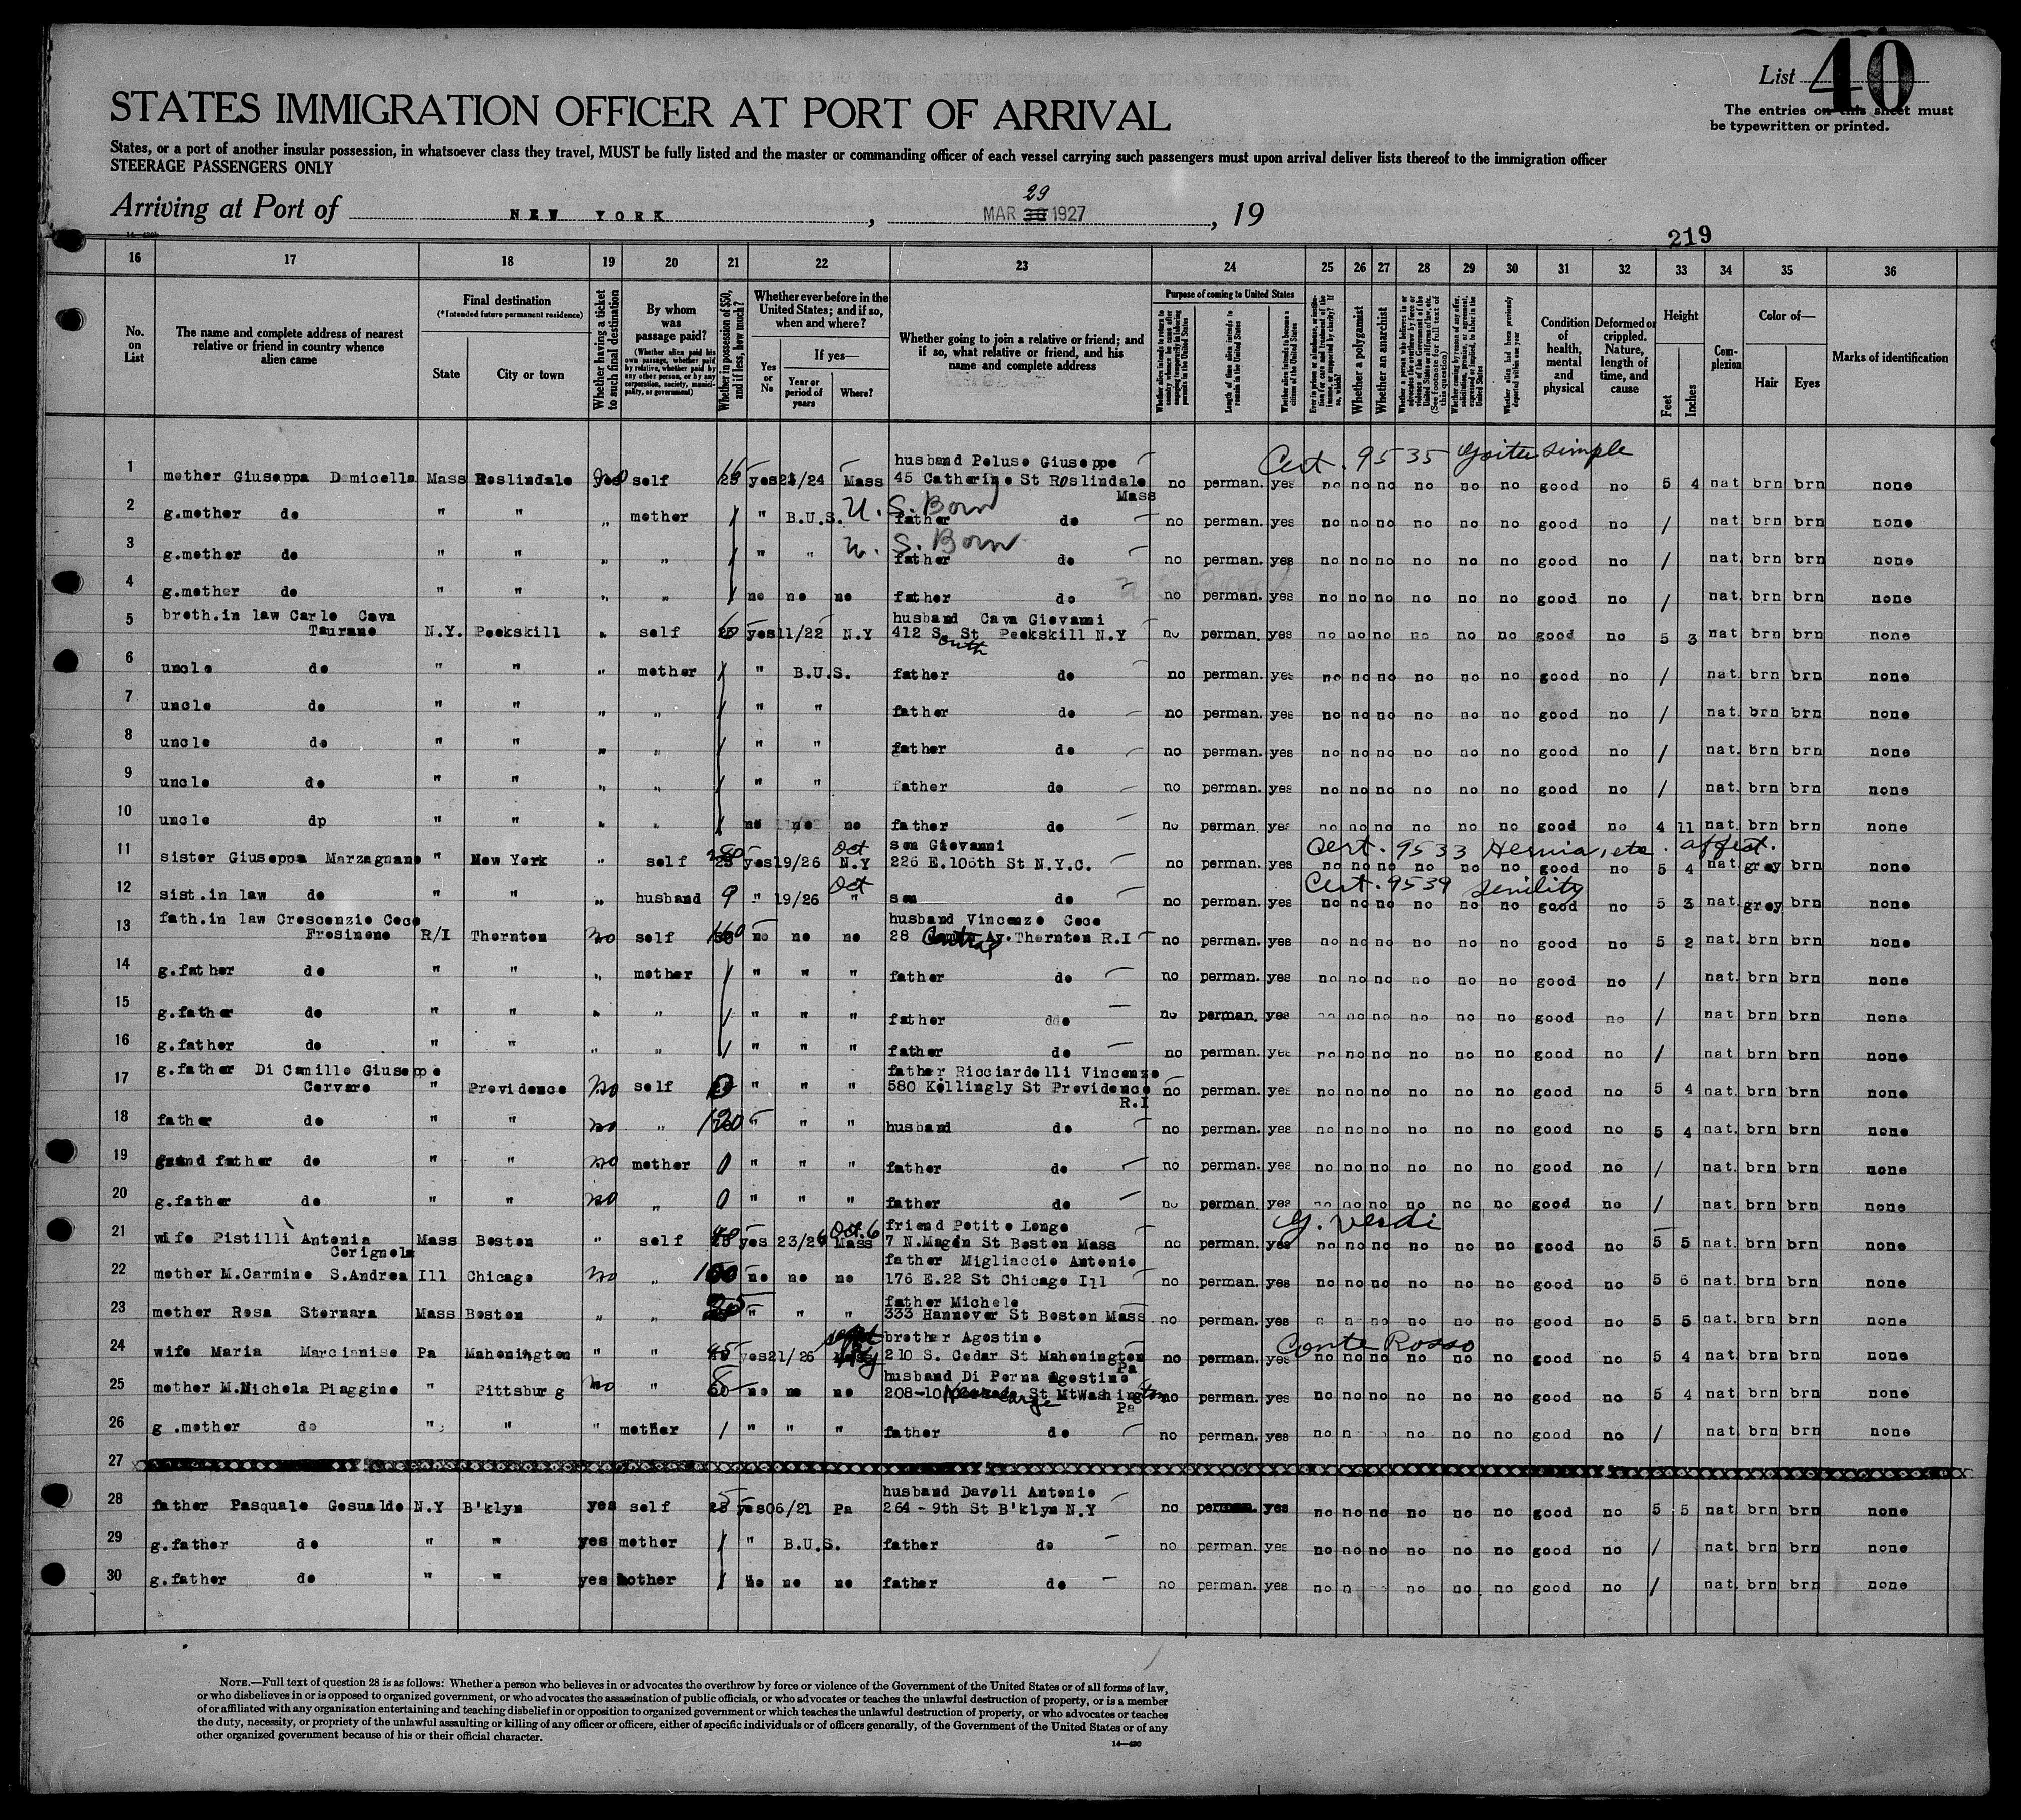 List 40
The entries on this sheet must
be typewritten or printed.
STATES IMMIGRATION OFFICER AT PORT OF ARRIVAL
States, or a port of another insular possession, in whatsoever class they travel, MUST be fully listed and the master or commanding officer of each vessel carrying such passengers must upon arrival deliver lists thereof to the immigration officer
STEERAGE PASSENGERS ONLY
Arriving at Port of NEW YORK, MAR 29 1927, 19
219
16 17 18 19 20 21 22 23 24 25 26 27 28 29 30 31 32 33 34 35 36
No. on List
The name and complete address of nearest relative or friend in country whence alien came
Final destination
(*Intended future permanent residence)
State
City or town
Whether having a ticket to such final destination
By whom was passage paid?
(Whether alien paid his own passage, whether paid by relative, whether paid by any other person, or by any corporation, society, municipality, or government)
Whether in possession of $50, and if less, how much?
Whether ever before in the United States; and if so, when and where?
Yes or No
If yes—
Year or period of years
Where?
Whether going to join a relative or friend; and if so, what relative or friend, and his name and complete address
Purpose of coming to United States
Length of time alien intends to remain in the United States
Whether alien intends to become a citizen of the United States
Whether a polygamist
Whether an anarchist
Condition of health, mental and physical
Deformed or crippled. Nature, length of time, and cause
Height
Feet
Inches
Complexion
Color of—
Hair
Eyes
Marks of identification
Cert. 9535 Goiter simple
1 mother Giuseppa Domicella Mass Roslindale self yes 24/24 Mass husband Peluso Giuseppe 45 Catherine St Roslindale Mass no perman. yes no no no no no no good no 5 4 nat brn brn none
2 g.mother do " " " mother / " B.U.S. U.S. Born father do no perman. yes no no no no no no good no / nat brn brn none
3 g.mother do " " " " / " " U.S. Born father do no perman. yes no no no no no no good no / nat. brn brn none
4 g.mother do " " " " / no no no father do no perman. yes no no no no no no good no / nat. brn brn none
5 broth.in law Carlo Cava Taurano N.Y. Peekskill " self yes 11/22 N.Y husband Cava Giovanni 412 South St Peekskill N.Y no perman. yes no no no no no no good no 5 3 nat brn brn none
6 uncle do " " " mother / " B.U.S. father do no perman. yes no no no no no no good no / nat. brn brn none
7 uncle do " " " " / " " father do no perman. yes no no no no no no good no / nat. brn brn none
8 uncle do " " " " / " " father do no perman. yes no no no no no no good no / nat. brn brn none
9 uncle do " " " " / " " father do no perman. yes no no no no no no good no / nat. brn brn none
10 uncle do " " " " / no no no father do no perman. yes no no no no no no good no 4 11 nat. brn brn none
Cert. 9533 Hernia, etc. affect.
11 sister Giuseppa Marzagnano " New York " self yes 19/26 Oct N.Y son Giovanni 226 E.106th St N.Y.C. no perman. yes no no no no no no good no 5 4 nat grey brn none
Cert. 9539 Senility
12 sist.in law do " " " husband 9 " 19/26 Oct " son do no perman. yes no no no no no no good no 5 3 nat. grey brn none
13 fath.in law Crescenzio Cece Frosinone R/I Thornton no self no no no husband Vincenzo Cece 28 Central Av. Thornton R.I no perman. yes no no no no no no good no 5 2 nat. brn brn none
14 g.father do " " " mother / " " " father do no perman. yes no no no no no no good no / nat. brn brn none
15 g.father do " " " " / " " " father do no perman. yes no no no no no no good no / nat brn brn none
16 g.father do " " " " / " " " father do no perman. yes no no no no no no good no / nat brn brn none
17 g.father Di Camillo Giuseppe Cervaro " Providence no self 0 " " " father Ricciardelli Vincenzo 580 Killingly St Providence R.I no perman. yes no no no no no no good no 5 4 nat. brn brn none
18 father do " " no " 120 " " " husband do no perman. yes no no no no no no good no 5 4 nat. brn brn none
19 grand father do " " no mother 0 " " " father do no perman. yes no no no no no no good no / nat. brn brn none
20 g.father do " " no " 0 " " " father do no perman. yes no no no no no no good no / nat. brn brn none
G. Verdi
21 wife Pistilli Antonia Cerignola Mass Boston " self yes 23/26 Oct. 6 Mass friend Petito Longo 7 N.Magin St Boston Mass no perman. yes no no no no no no good no 5 5 nat. brn brn none
22 mother M.Carmine S.Andrea Ill Chicago no " 100 no no no father Migliaccio Antonio 176 E.22 St Chicago Ill no perman. yes no no no no no no good no 5 6 nat. brn brn none
23 mother Rosa Sternara Mass Boston " " 25 " " " father Michele 333 Hannover St Boston Mass no perman. yes n n no no no no good no 5 5 nat. brn brn none
Conte Rosso
24 wife Maria Marcianise Pa Mahonington " " 45 yes 21/26 brother Agostino 210 S. Cedar St Mahonington Pa no perman. yes no no no no no no good no 5 4 nat. brn brn none
25 mother M.Michela Piaggine " Pittsburg no " no no no husband Di Perna Agostino 208-10 St MtWashington Pa no perman. yes no no no no no no good no 5 4 nat. brn brn none
26 g.mother do " " " mother / " " " father do no perman. yes no n no no no good no / nat. brn brn none
27
28 father Pasquale Gesualdo N.Y B'klyn yes self yes 06/21 Pa husband Davoli Antonio 264 - 9th St B'klyn N.Y no perman. yes no no no no no no good no 5 5 nat brn brn none
29 g.father do " " yes mother / " B.U.S. father do no perman. yes no no no no no no good no / nat. brn brn none
30 g.father do " " yes mother / no no no father do no perman. yes no n no no no good no / nat. brn brn none
NOTE.—Full text of question 28 is as follows: Whether a person who believes in or advocates the overthrow by force or violence of the Government of the United States or of all forms of law,
or who disbelieves in or is opposed to organized government, or who advocates the assassination of public officials, or who advocates or teaches the unlawful destruction of property, or is a member
of or affiliated with any organization entertaining and teaching disbelief in or opposition to organized government or which teaches the unlawful destruction of property, or who advocates or teaches
the duty, necessity, or propriety of the unlawful assaulting or killing of any officer or officers, either of specific individuals or of officers generally, of the Government of the United States or of any
other organized government because of his or their official character.
14—420